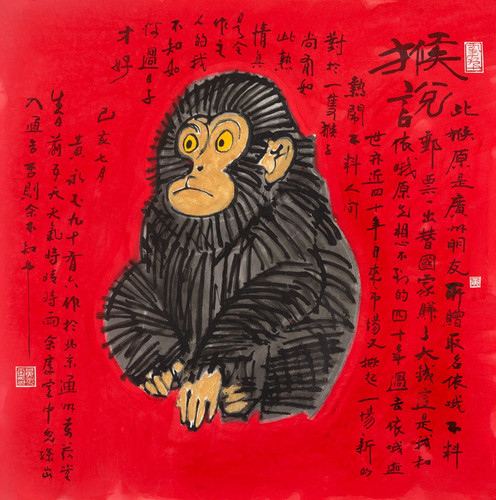 猴說
此猴原是廣州朋友所贈取名依哦不料
郵票一出替國家賺了大錢這是我和
依哦原先想不到的四十年過去依哦逝
世亦近四十年日來市場又掀起一場新的
熱鬧不料人們
對於一隻猴子
尚有如
此熱
情真
是令
作之
人的我
不知如
何過日子
才好
己亥七月
黃永玉九十有六作於北京通州萬荷堂
生日前五天天氣時晴時雨余虛室中
否則余不知也